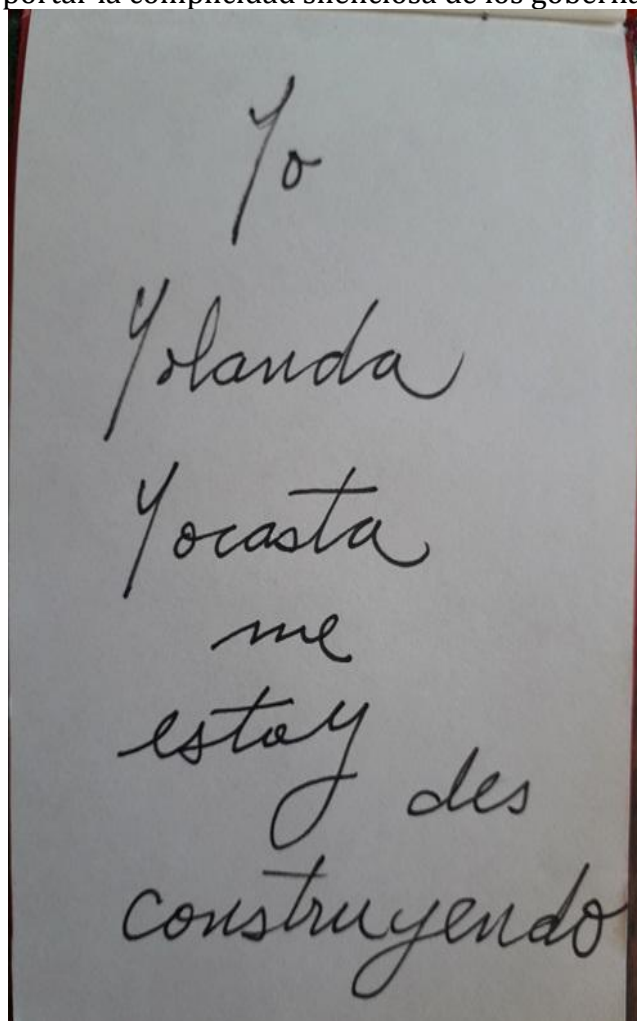 portar la complicidad silenciosa de los goberna
Yo
Yolanda
Yocasta
me
estoy
des
construyendo